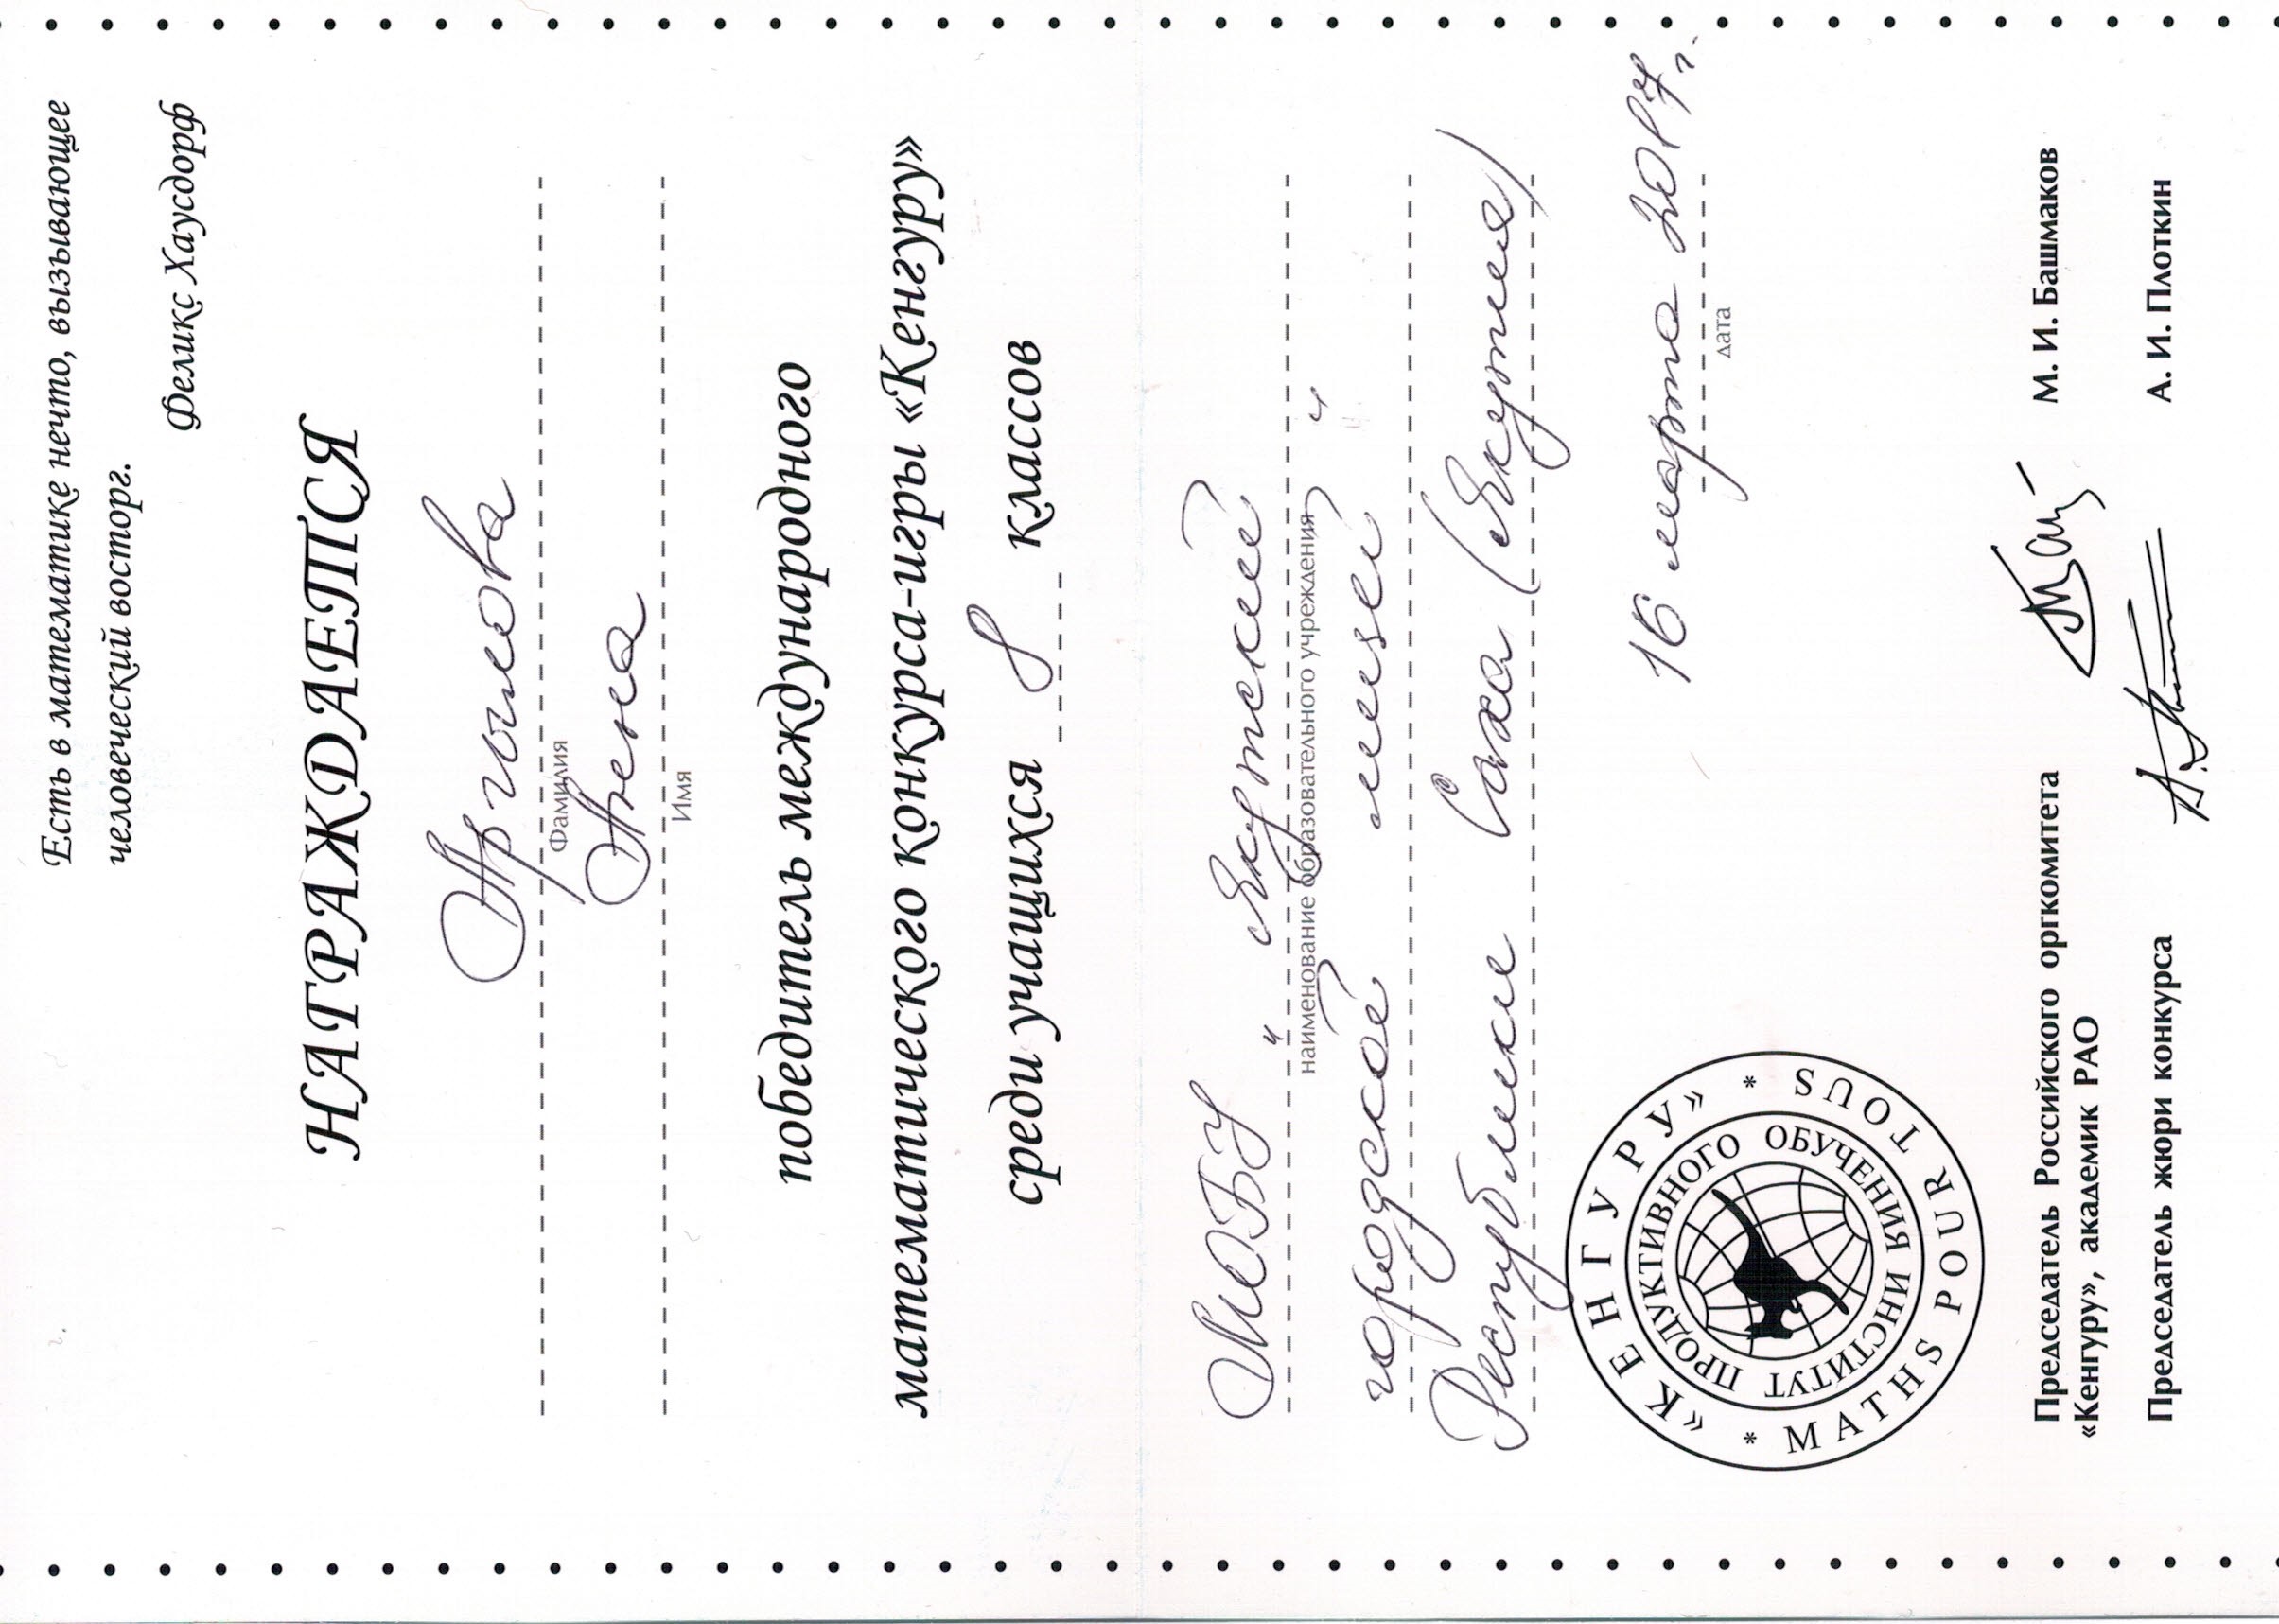 Есть в математике нечто, вызывающее
человеческий восторг.
Феликс Хаусдорф
НАГРАЖДАЕТСЯ
Аргылова
Фамилия
Анна
Имя
победитель международного
математического конкурса-игры «Кенгуру»
среди учащихся 8 классов
МОБУ „Якутский
наименование образовательного учреждения
городской лицей"
Республики Саха (Якутия)
«КЕНГУРУ»
ИНСТИТУТ ПРОДУКТИВНОГО ОБУЧЕНИЯ
* MATHS POUR TOUS *
16 марта 2017г.
дата
Председатель Российского оргкомитета М. И. Башмаков
«Кенгуру», академик РАО
Председатель жюри конкурса А. И. Плоткин